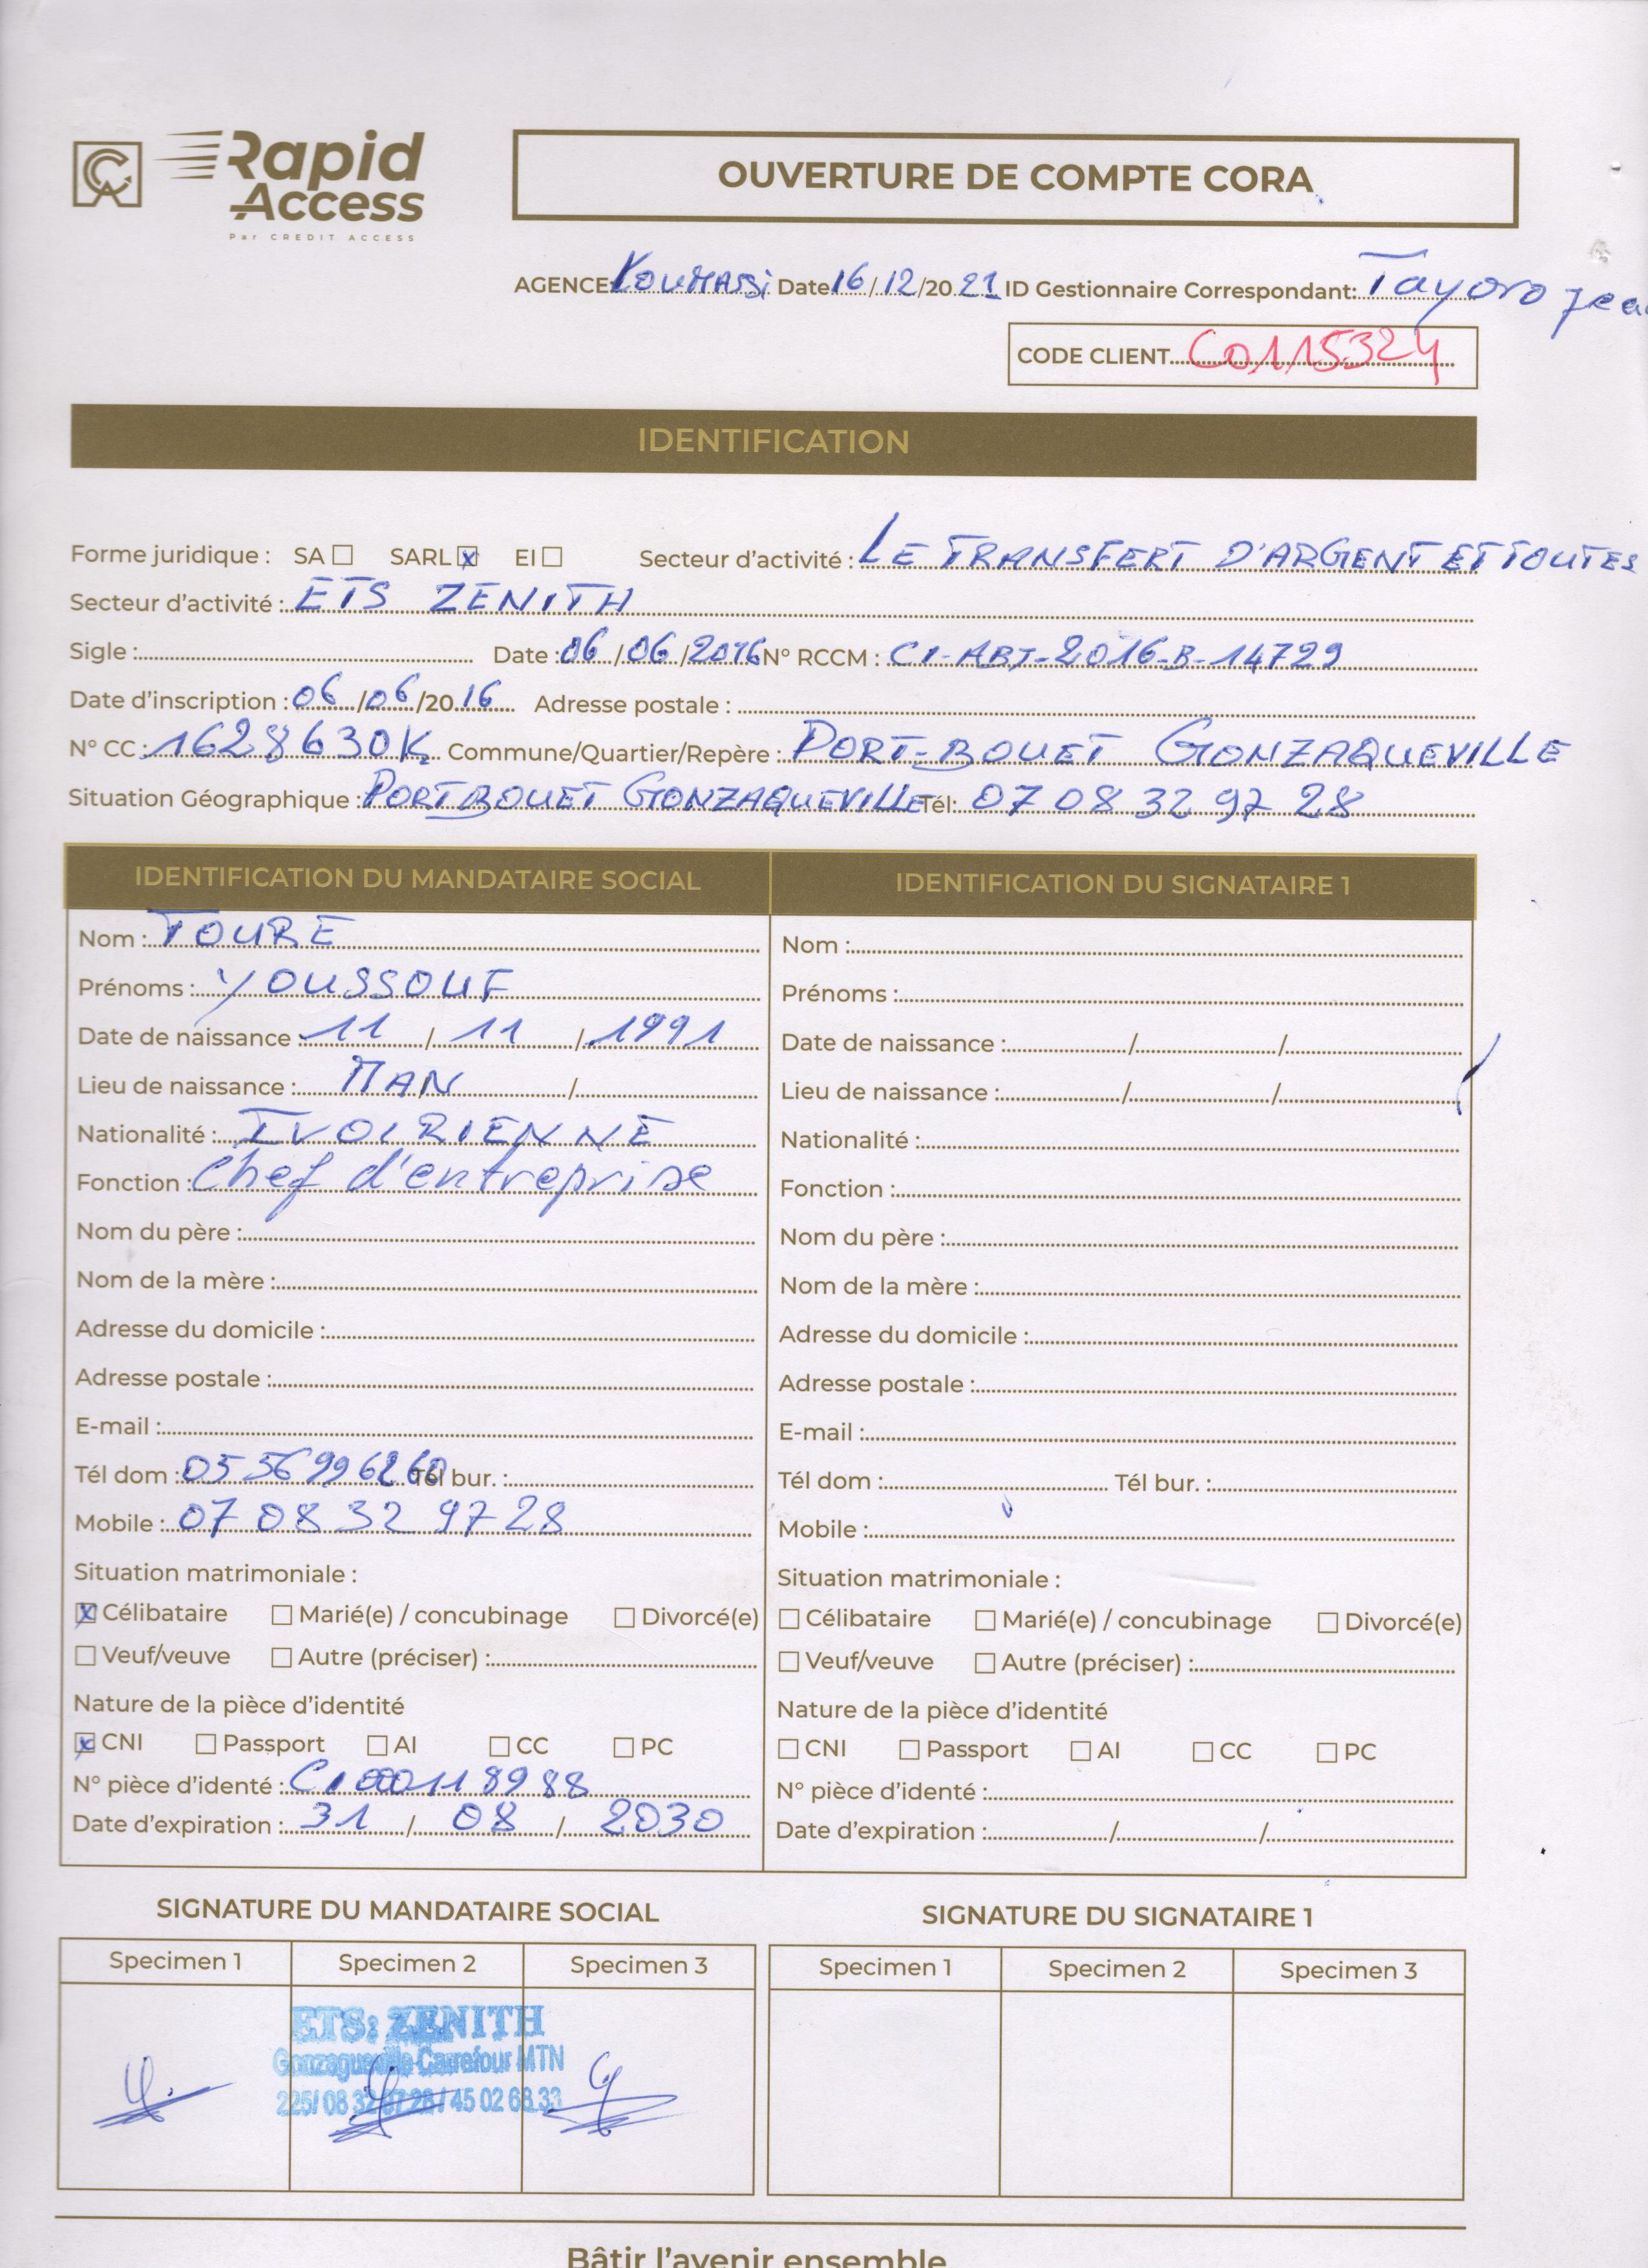 Rapid Access
Par CREDIT ACCESS
OUVERTURE DE COMPTE CORA
AGENCE Koumassi Date 16/12/2021 ID Gestionnaire Correspondant: Tayoro
CODE CLIENT C0115324
IDENTIFICATION
Forme juridique : SA ☐ SARL ☒ EI ☐ Secteur d'activité : LE TRANSFERT D'ARGENT ET TOUTES
Secteur d'activité : ETS ZENITH
Sigle : Date : 06/06/2016 N° RCCM : CI-ABJ-2016-B-14729
Date d'inscription : 06/06/2016 Adresse postale :
N° CC : 1628630K Commune/Quartier/Repère : PORT-BOUET GONZAQUEVILLE
Situation Géographique : PORTBOUET GONZAQUEVILLE Tél: 07 08 32 97 28
IDENTIFICATION DU MANDATAIRE SOCIAL
Nom : TOURE
Prénoms : YOUSSOUF
Date de naissance : 11 / 11 / 1991
Lieu de naissance : MAN /
Nationalité : IVOIRIENNE
Fonction : Chef d'entreprise
Nom du père :
Nom de la mère :
Adresse du domicile :
Adresse postale :
E-mail :
Tél dom : 05 56 99 62 60 Tél bur. :
Mobile : 07 08 32 97 28
Situation matrimoniale :
☒ Célibataire ☐ Marié(e) / concubinage ☐ Divorcé(e)
☐ Veuf/veuve ☐ Autre (préciser) :
Nature de la pièce d'identité
☒ CNI ☐ Passport ☐ AI ☐ CC ☐ PC
N° pièce d'identé : CI000118988
Date d'expiration : 31 / 08 / 2030
IDENTIFICATION DU SIGNATAIRE 1
Nom :
Prénoms :
Date de naissance : / /
Lieu de naissance : / /
Nationalité :
Fonction :
Nom du père :
Nom de la mère :
Adresse du domicile :
Adresse postale :
E-mail :
Tél dom : Tél bur. :
Mobile :
Situation matrimoniale :
☐ Célibataire ☐ Marié(e) / concubinage ☐ Divorcé(e)
☐ Veuf/veuve ☐ Autre (préciser) :
Nature de la pièce d'identité
☐ CNI ☐ Passport ☐ AI ☐ CC ☐ PC
N° pièce d'identé :
Date d'expiration : / /
SIGNATURE DU MANDATAIRE SOCIAL
Specimen 1 Specimen 2 Specimen 3
ETS: ZENITH
Gonzagueville Carrefour MTN
225/ 08 32 97 28 / 45 02 68 33
SIGNATURE DU SIGNATAIRE 1
Specimen 1 Specimen 2 Specimen 3
Bâtir l'avenir ensemble